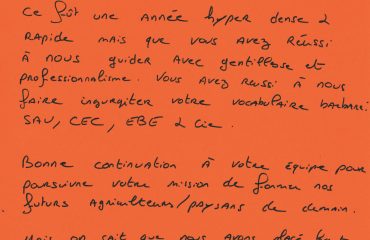 Ce fût une année hyper dense &
rapide mais que vous avez réussi
à nous guider avec gentillesse et
professionnalisme. Vous avez reussi à nous
faire ingurgiter votre vocabulaire barbare:
SAU, CEC, EBE & Cie.
Bonne continuation à votre equipe pour
poursuivre votre mission de former nos
futurs agriculteurs/paysans de demain.
Mais on sait que nous avons déjà